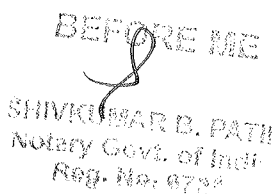 BEFORE ME
SHIVKUMAR B. PATIL
Notary Govt. of India
Reg. No.